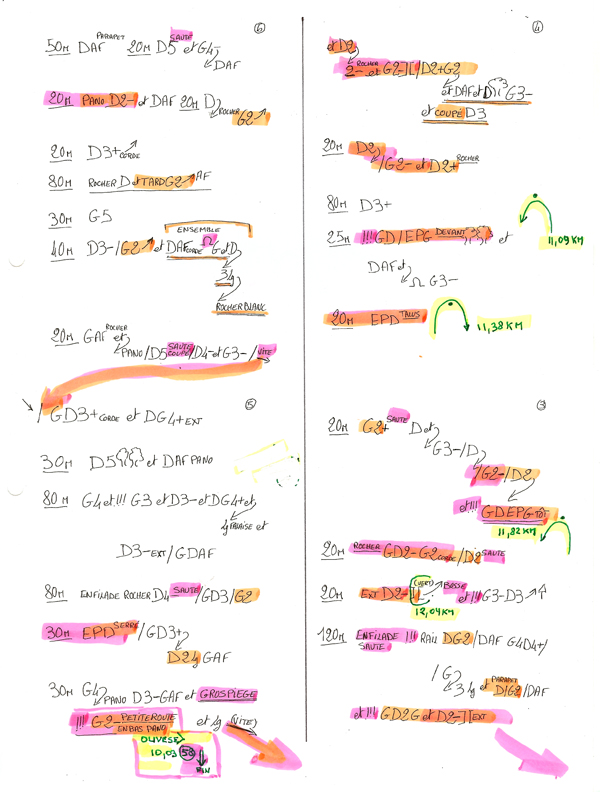 6
50M DAF PARAPET 20M D5 SAUTE et G4-
DAF
20M PANO D2- et DAF 20M D
ROCHER
G2
20M D3+ CORDE
80M ROCHER D et TARD G2 AF
30M G5
ENSEMBLE
40M D3-/G2 et DAF CORDE Ω G et D
3/4
ROCHER BLANC
20M GAF ROCHER et
PANO/D5 SAUTE COUPE/D4- et G3-/VITE
5
/GD3+ CORDE et DG4+ EXT
30M D5 et DAF PANO
80M G4 et !!! G3 et D3- et DG4+ et
FALAISE et
D3- EXT/GDAF
80M ENFILADE ROCHER D4 SAUTE/GD3/G2
30M EPD SERRE/GD3+
D2 GAF
30M G4
PANO D3- GAF et GROS PIEGE
!!! G2- PETITE ROUTE EN BAS PANO et VITE
OLIVESE
10,03 58
4
et D2
2- ROCHER et G2-][/D2+G2
et DAF et D G3-
et COUPÉ D3
20M D2
/G2- et D2+ ROCHER
80M D3+
25M !!! GD/EPG DEVANT et
11,09 KM
DAF et
Ω G3-
20M EPD TALUS
11,38 KM
3
20M G2+ SAUTE D et
G3-/D
/G2-/D2
et !!! GDEPG TÔT
11,82 KM
20M ROCHER GD2-G2 CORDE/D2 SAUTE
20M EXT D2- (VERT) BOSSE et !!! G3-D3
12,04 KM
120M ENFILADE !!! RAIL DG2/DAF G4D4+/
SAUTE
/G
3 et PARAPET D/G2/DAF
et !!! GD2G et D2-][ EXT